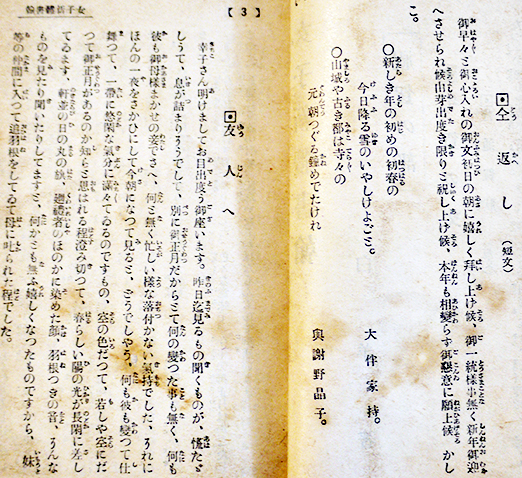 仝返し（短文）
御早々と御心入れの御文初日の朝に嬉しく拜し上げ候、御一統樣事無く新年御迎
へさせられ候山芽出度き限りと祝し上げ候、本年も相變らず御懇意に願上候　かし
こ。
○新しき年の初めの初春の
今日降る雪のいやしけよごと。
大伴家持。
○山城や古き都は寺々の
元朝つくる鐘めでたけれ
與謝野晶子。
【3】
女子新體書翰
友人へ
幸子さん明けましてお目出度う御座います。昨日迄見るもの聞くものが、慌たゞ
しうて、息が詰まりさうでして、別に御正月だからとて何の變つた事も無く、何も
彼も御母樣まかせの妾でさへ、何と無く忙しい樣な落付かない氣持でした。それに
ほんの一夜をさかひにして今朝になつて見ると、どうでしやう、何も彼も變つて仕
舞つて、一番に悠閑な氣分に滿々てゐるのですもの、空の色だつて、若しや空にだ
つて御正月があるのか知らと思はれる程澄み切つて、春らしい陽の光が長閑に差し
てゐます、軒並の日の丸の旗、廻禮者のほのかに染めた顏、羽根つきの音、そんな
ものを見たり聞いたりしてますと、何かとも無ふ嬉しくなつたものですから、妹
等の仲間に入つて追羽根をしてゐて母に叱られた程でした。